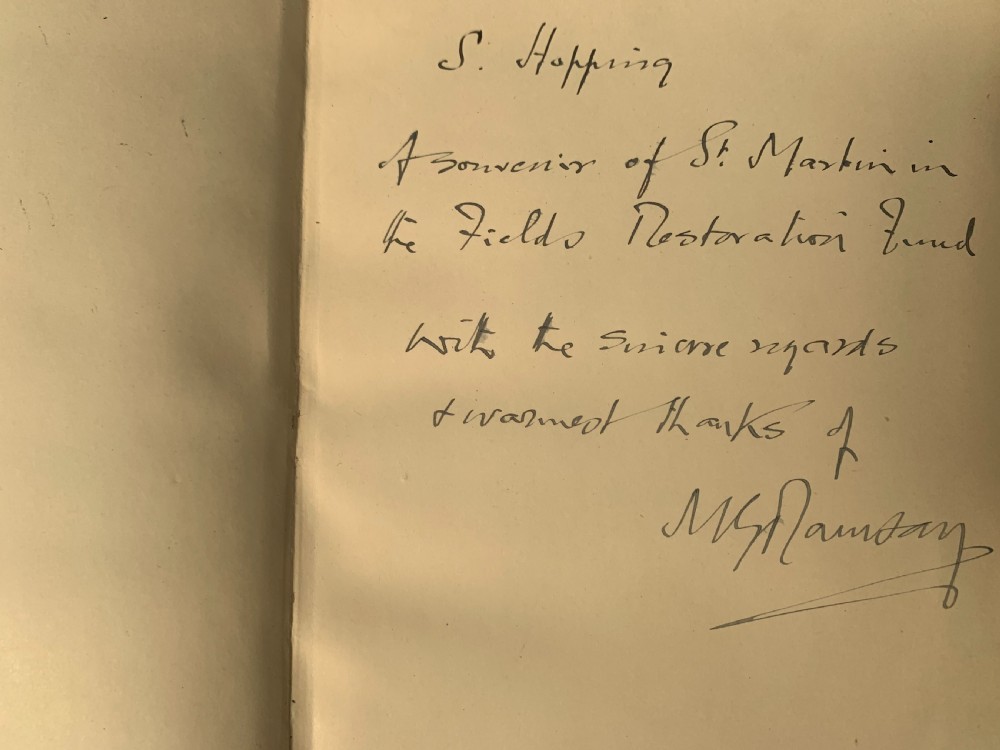 S. Hopping
A souvenir of St. Martin in
the Fields Restoration Fund
with the sincere regards
& warmest thanks of
MGRamsay